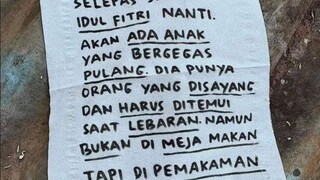 SELEPAS
IDUL FITRI NANTI.
AKAN ADA ANAK
YANG BERGEGAS
PULANG. DIA PUNYA
ORANG YANG DISAYANG
DAN HARUS DITEMUI
SAAT LEBARAN. NAMUN
BUKAN DI MEJA MAKAN
TAPI DI PEMAKAMAN